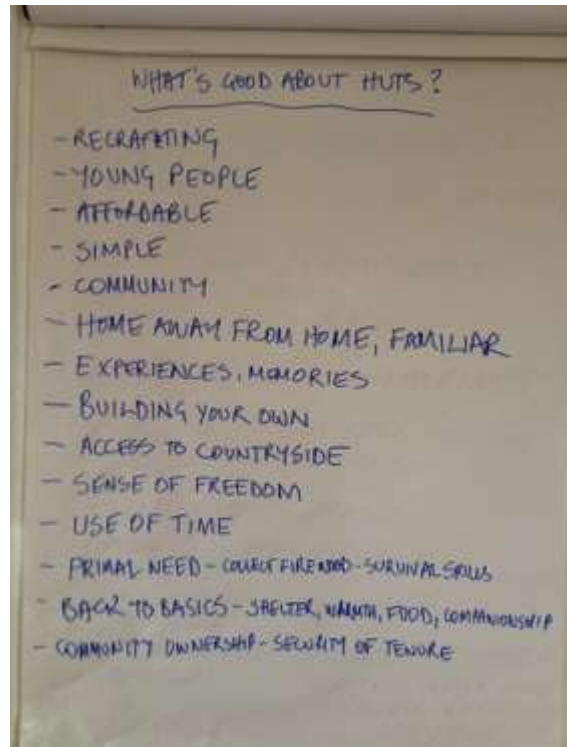 WHAT'S GOOD ABOUT HUTS?
- RECRAFTING
- YOUNG PEOPLE
- AFFORDABLE
- SIMPLE
- COMMUNITY
- HOME AWAY FROM HOME, FAMILIAR
- EXPERIENCES, MEMORIES
- BUILDING YOUR OWN
- ACCESS TO COUNTRYSIDE
- SENSE OF FREEDOM
- USE OF TIME
- PRIMAL NEED - COLLECT FIREWOOD - SURVIVAL SKILLS
- BACK TO BASICS - SHELTER, WARMTH, FOOD, COMPANIONSHIP
- COMMUNITY OWNERSHIP - SECURITY OF TENURE